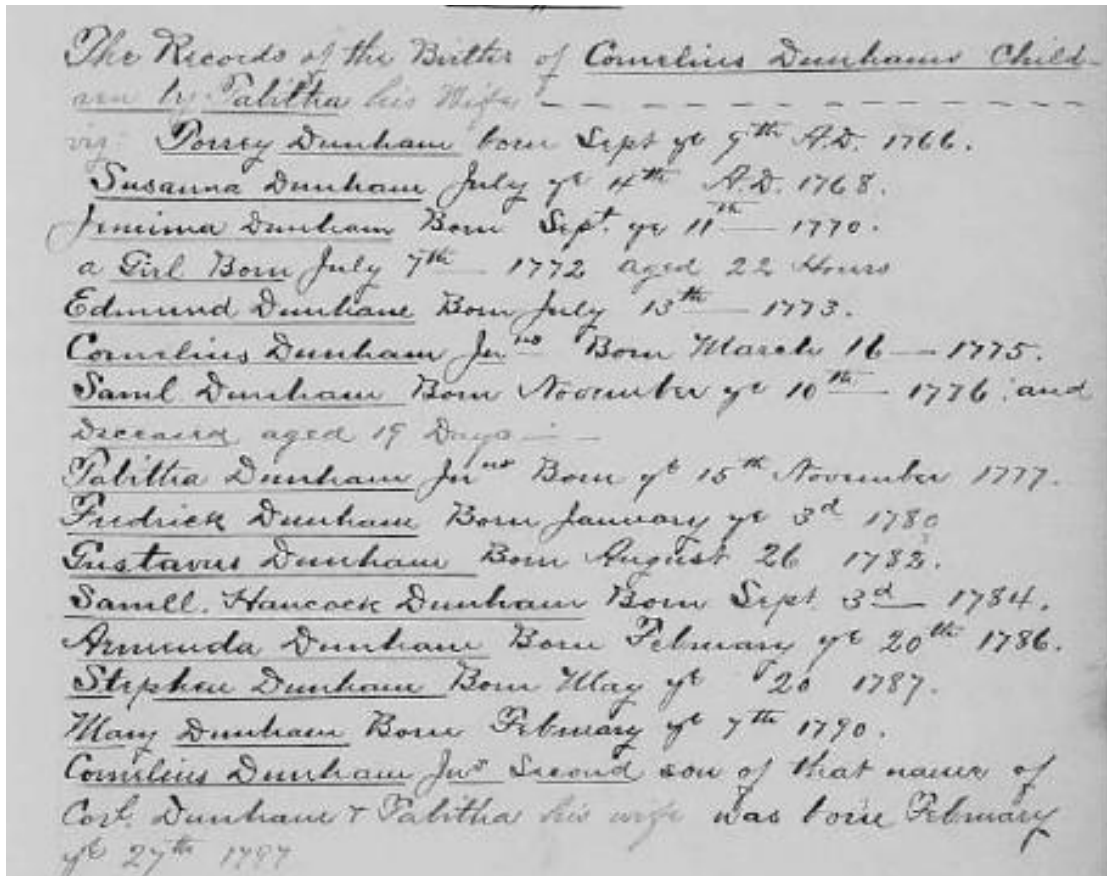 The Records of the Births of Cornelius Dunhams Child-
ren by Tabitha his Wife - - - - - - - - - - - - -
viz: Torrey Dunham born Sept ye 9th A.D. 1766.
Susanna Dunham July ye 4th A.D. 1768.
Jemima Dunham Born Sept. ye 11th — 1770.
a Girl Born July 7th — 1772 aged 22 Hours
Edmund Dunham Born July 13th — 1773.
Cornelius Dunham Jnr Born March 16 — 1775.
Saml Dunham Born November ye 10th — 1776. and
Deceased aged 19 Days — —
Tabitha Dunham Jnr Born ye 15th November 1777.
Fredrick Dunham Born January ye 3d 1780
Gustavus Dunham Born August 26 1782.
Samll. Hancock Dunham Born Sept. 3d — 1784.
Armenda Dunham Born February ye 20th 1786.
Stephen Dunham Born May ye 20 1787.
Mary Dunham Born February ye 7th 1790.
Cornelius Dunham Jnr Second son of that name of
Dunham & Tabitha his wife was born February
ye 27th 1787